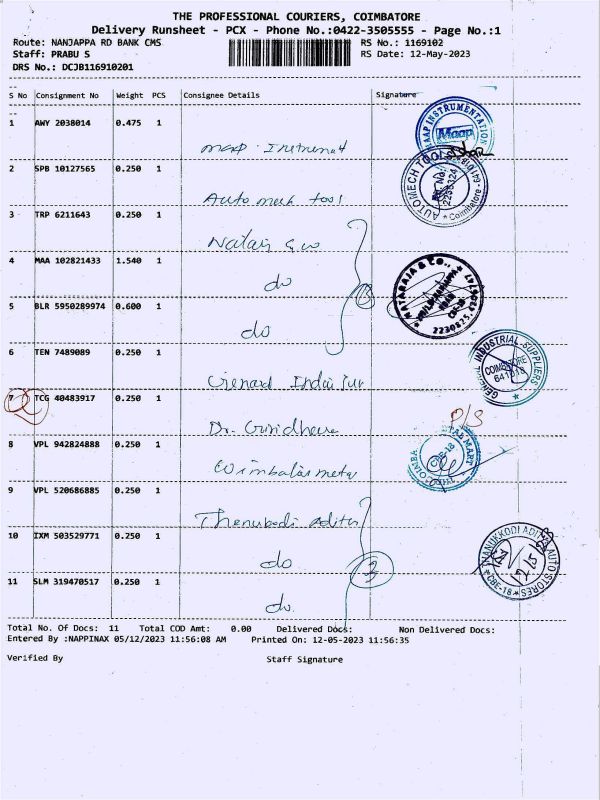 THE PROFESSIONAL COURIERS, COIMBATORE
Delivery Runsheet - PCX - Phone No.:0422-3505555 - Page No.:1
Route: NANJAPPA RD BANK CMS RS No.: 1169102
Staff: PRABU S RS Date: 12-May-2023
DRS No.: DCJB116910201
S No Consignment No Weight PCS Consignee Details Signature
1 AWY 2038014 0.475 1
MAAP INSTRUMENTATION
Maap
2 SPB 10127565 0.250 1
Auto mech tool
AUTOMECH TOOLS
Coimbatore
3 TRP 6211643 0.250 1
4 MAA 102821433 1.540 1
do
3
NATARAJA & CO.,
CBE-18
5 BLR 5950289974 0.600 1
do
6 TEN 7489089 0.250 1
GENERAL INDUSTRIAL SUPPLIERS
COIMBATORE
641018
7 TCG 40483917 0.250 1
P/S
8 VPL 942824888 0.250 1
CBE-18
9 VPL 520686885 0.250 1
10 IXM 503529771 0.250 1
do
3
DHANUKKODI ADITYA AUTO STORES
CBE-18
11 SLM 319470517 0.250 1
do
Total No. Of Docs: 11 Total COD Amt: 0.00 Delivered Docs: Non Delivered Docs:
Entered By :NAPPINAX 05/12/2023 11:56:08 AM Printed On: 12-05-2023 11:56:35
Verified By Staff Signature